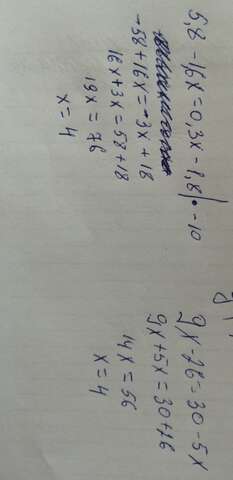 5,8 - 1,6x = 0,3x - 1,8 | · -10
-58 + 16x = -3x + 18
16x + 3x = 58 + 18
19x = 76
x = 4
9x - 26 = 30 - 5x
9x + 5x = 30 + 26
14x = 56
x = 4